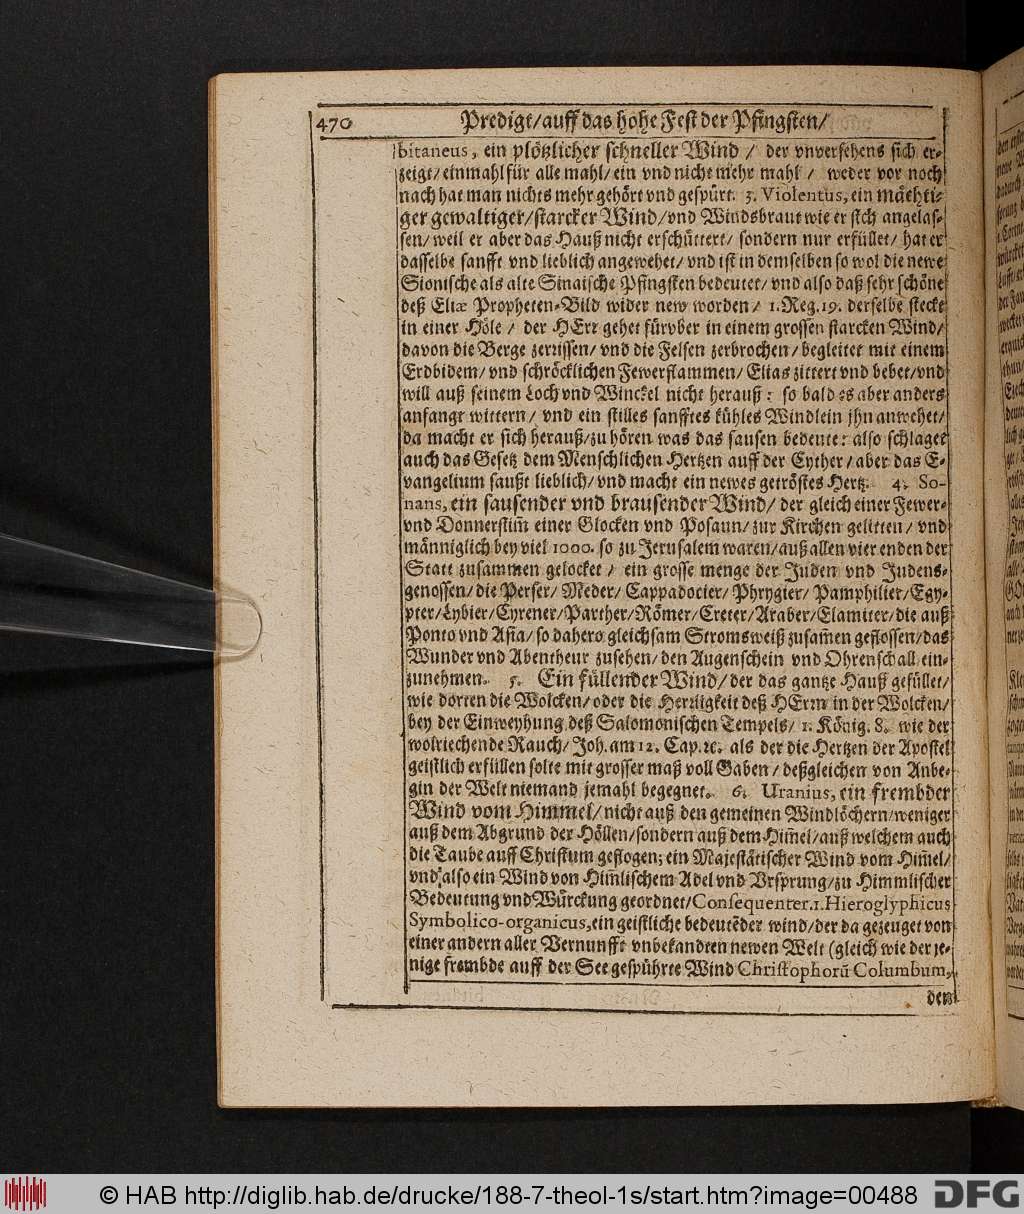 470 Predigt/auff das hohe Fest der Pfingsten/
bitaneus, ein plötzlicher schneller Wind / der vnversehens sich er-
zeigt/einmahl für alle mahl/ein vnd nicht mehr mahl / weder vor noch
nach hat man nichts mehr gehört vnd gespürt. 3. Violentus, ein mächti-
ger gewaltiger/starcker Wind/vnd Windsbraut wie er sich angelas-
sen/weil er aber das Hauß nicht erschüttert/ sondern nur erfüllet/hat er
dasselbe sanfft vnd lieblich angewehet/vnd ist in demselben so wol die newe
Sionische als alte Sinaische Pfingsten bedeutet/vnd also daß sehr schöne
deß Eliæ Propheten-Bild wider new worden/ 1.Reg.19. derselbe steckt
in einer Höle / der HErr gehet fürvber in einem grossen starcken Wind/
davon die Berge zerrissen/vnd die Felsen zerbrochen/begleitet mit einem
Erdbidem/vnd schröcklichen Fewerflammen/Elias zittert vnd bebet/vnd
will auß seinem Loch vnd Winckel nicht herauß: so bald es aber anders
anfangt wittern/ vnd ein stilles sanfftes kühles Windlein jhn anwehet/
da macht er sich herauß/zu hören was das sausen bedeute: also schlaget
auch das Gesetz dem Menschlichen Hertzen auff der Cyther/aber das E-
vangelium saußt lieblich/vnd macht ein newes getröstes Hertz. 4. So-
nans, ein sausender vnd brausender Wind/ der gleich einer Fewer-
vnd Donnerstim̃ einer Glocken vnd Posaun/zur Kirchen gelitten/ vnd
männiglich bey viel 1000. so zu Jerusalem waren/auß allen vier enden der
Statt zusammen gelocket/ ein grosse menge der Juden vnd Judens-
genossen/die Perser/ Meder/ Cappadocier/ Phrygier/ Pamphilier/Egy-
pter/Lybier/Cyrener/Parther/Römer/Creter/Araber/Elamiter/die auß
Ponto vnd Asia/so dahero gleichsam Stromsweiß zusam̃en geflossen/das
Wunder vnd Abentheur zusehen/den Augenschein vnd Ohrenschall ein-
zunehmen. 5. Ein füllender Wind/der das gantze Hauß gefüllet/
wie dorten die Wolcken/oder die Herrligkeit deß HErrn in der Wolcken/
bey der Einweyhung deß Salomonischen Tempels/ 1. König. 8. wie der
wolriechende Rauch/Joh.am 12. Cap.ꝛc. als der die Hertzen der Apostel
geistlich erfüllen solte mit grosser maß voll Gaben/deßgleichen von Anbe-
gin der Welt niemand jemahl begegnet. 6. Uranius, ein frembder
Wind vom Himmel/nicht auß den gemeinen Windlöchern/weniger
auß dem Abgrund der Höllen/sondern auß dem Him̃el/auß welchem auch
die Taube auff Christum geflogen; ein Majestätischer Wind vom Him̃el/
vnd also ein Wind von Him̃lischem Adel vnd Vrsprung/zu Himmlischer
Bedeutung vnd Würckung geordnet/Consequenter.1.Hieroglyphicus
Symbolico-organicus,ein geistliche bedeutẽder wind/der da gezeuget von
einer andern aller Vernunfft vnbekandten newen Welt (gleich wie der je-
nige frembde auff der See gespührte Wind Christophorũ Columbum,
den
© HAB http://diglib.hab.de/drucke/188-7-theol-1s/start.htm?image=00488
DFG